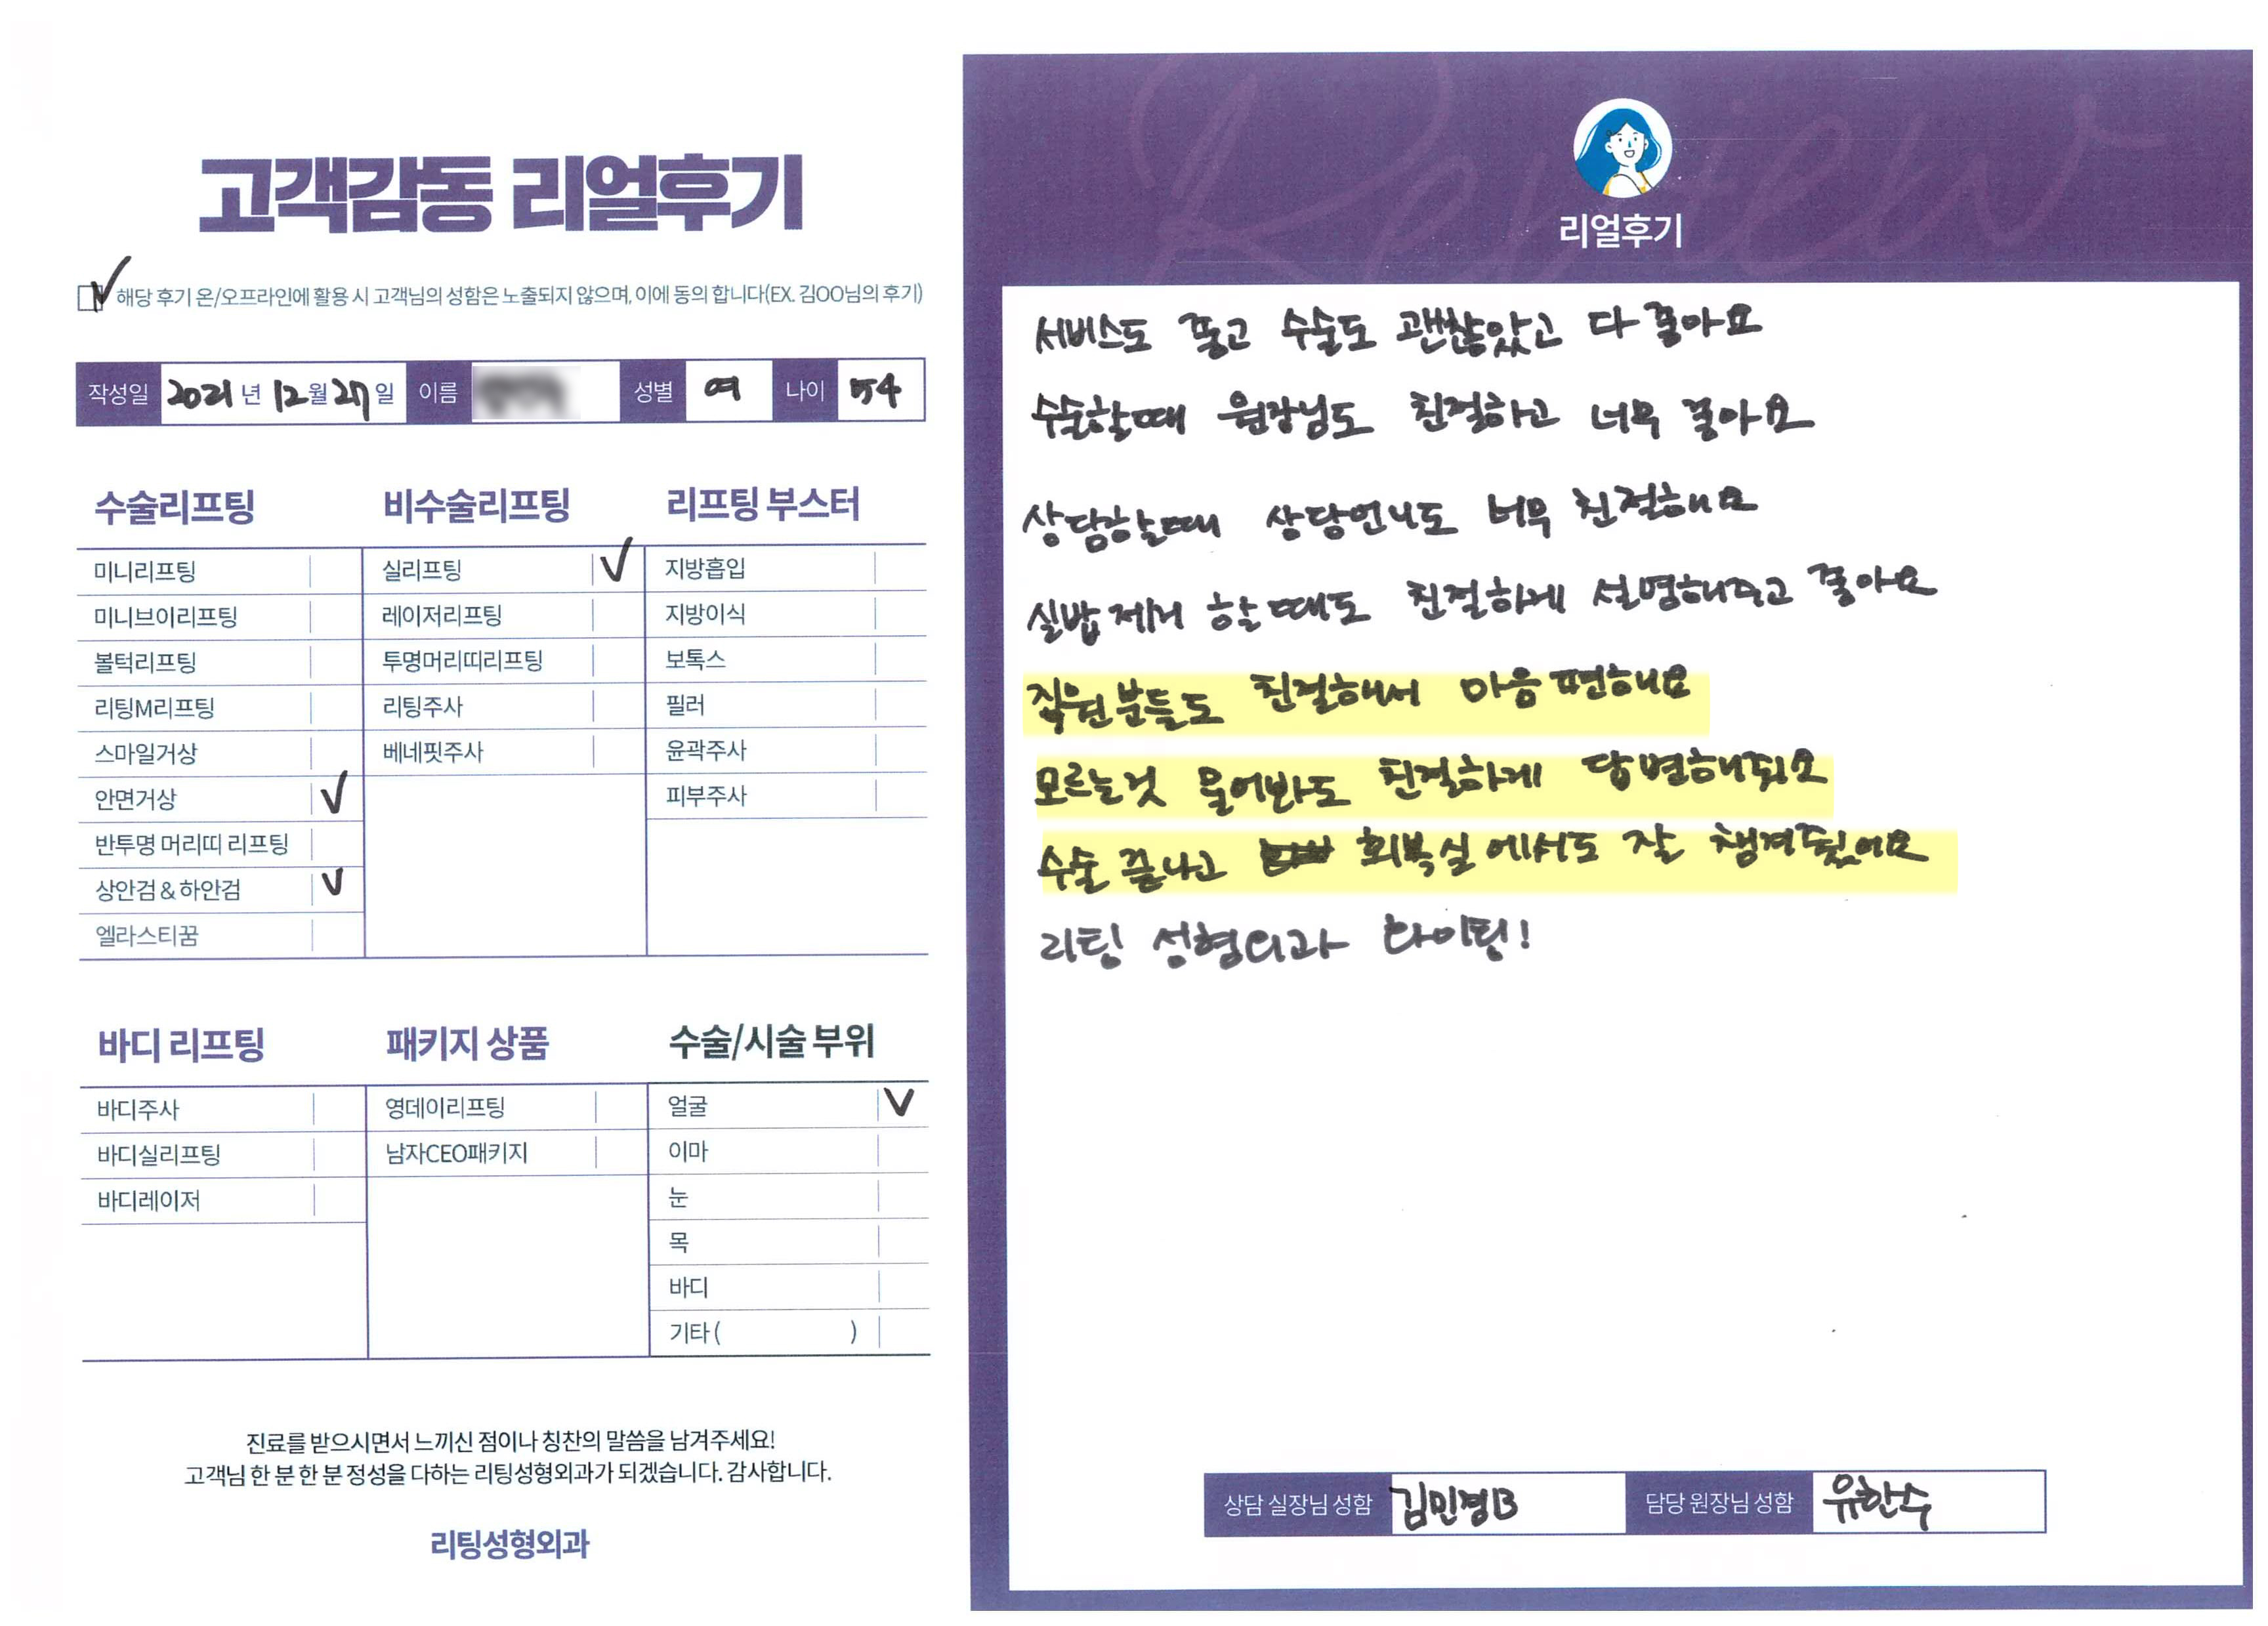 고객감동 리얼후기
해당 후기 온/오프라인에 활용 시 고객님의 성함은 노출되지 않으며, 이에 동의 합니다(EX. 김OO님의 후기)
작성일 2021년 12월 27일 이름 성별 여 나이 54
수술리프팅
미니리프팅
미니브이리프팅
볼턱리프팅
리팅M리프팅
스마일거상
안면거상
반투명 머리띠 리프팅
상안검 & 하안검
엘라스티꿈
비수술리프팅
실리프팅
레이저리프팅
투명머리띠리프팅
리팅주사
베네핏주사
리프팅 부스터
지방흡입
지방이식
보톡스
필러
윤곽주사
피부주사
바디 리프팅
바디주사
바디실리프팅
바디레이저
패키지 상품
영데이리프팅
남자CEO패키지
수술/시술 부위
얼굴
이마
눈
목
바디
기타 ( )
진료를 받으시면서 느끼신 점이나 칭찬의 말씀을 남겨주세요!
고객님 한 분 한 분 정성을 다하는 리팅성형외과가 되겠습니다. 감사합니다.
리팅성형외과
Review
리얼후기
서비스도 좋고 수술도 괜찮았고 다 좋아요
수술할때 원장님도 친절하고 너무 좋아요
상담할때 상담언니도 너무 친절해요
실밥제거 할때도 친절하게 설명해주고 좋아요
직원분들도 친절해서 마음편해요
모르는것 물어봐도 친절하게 답변해줘요
수술 끝나고 회복실에서도 잘 챙겨줬어요
리팅 성형외과 화이팅!
상담 실장님 성함 김민경B 담당 원장님 성함 유한수